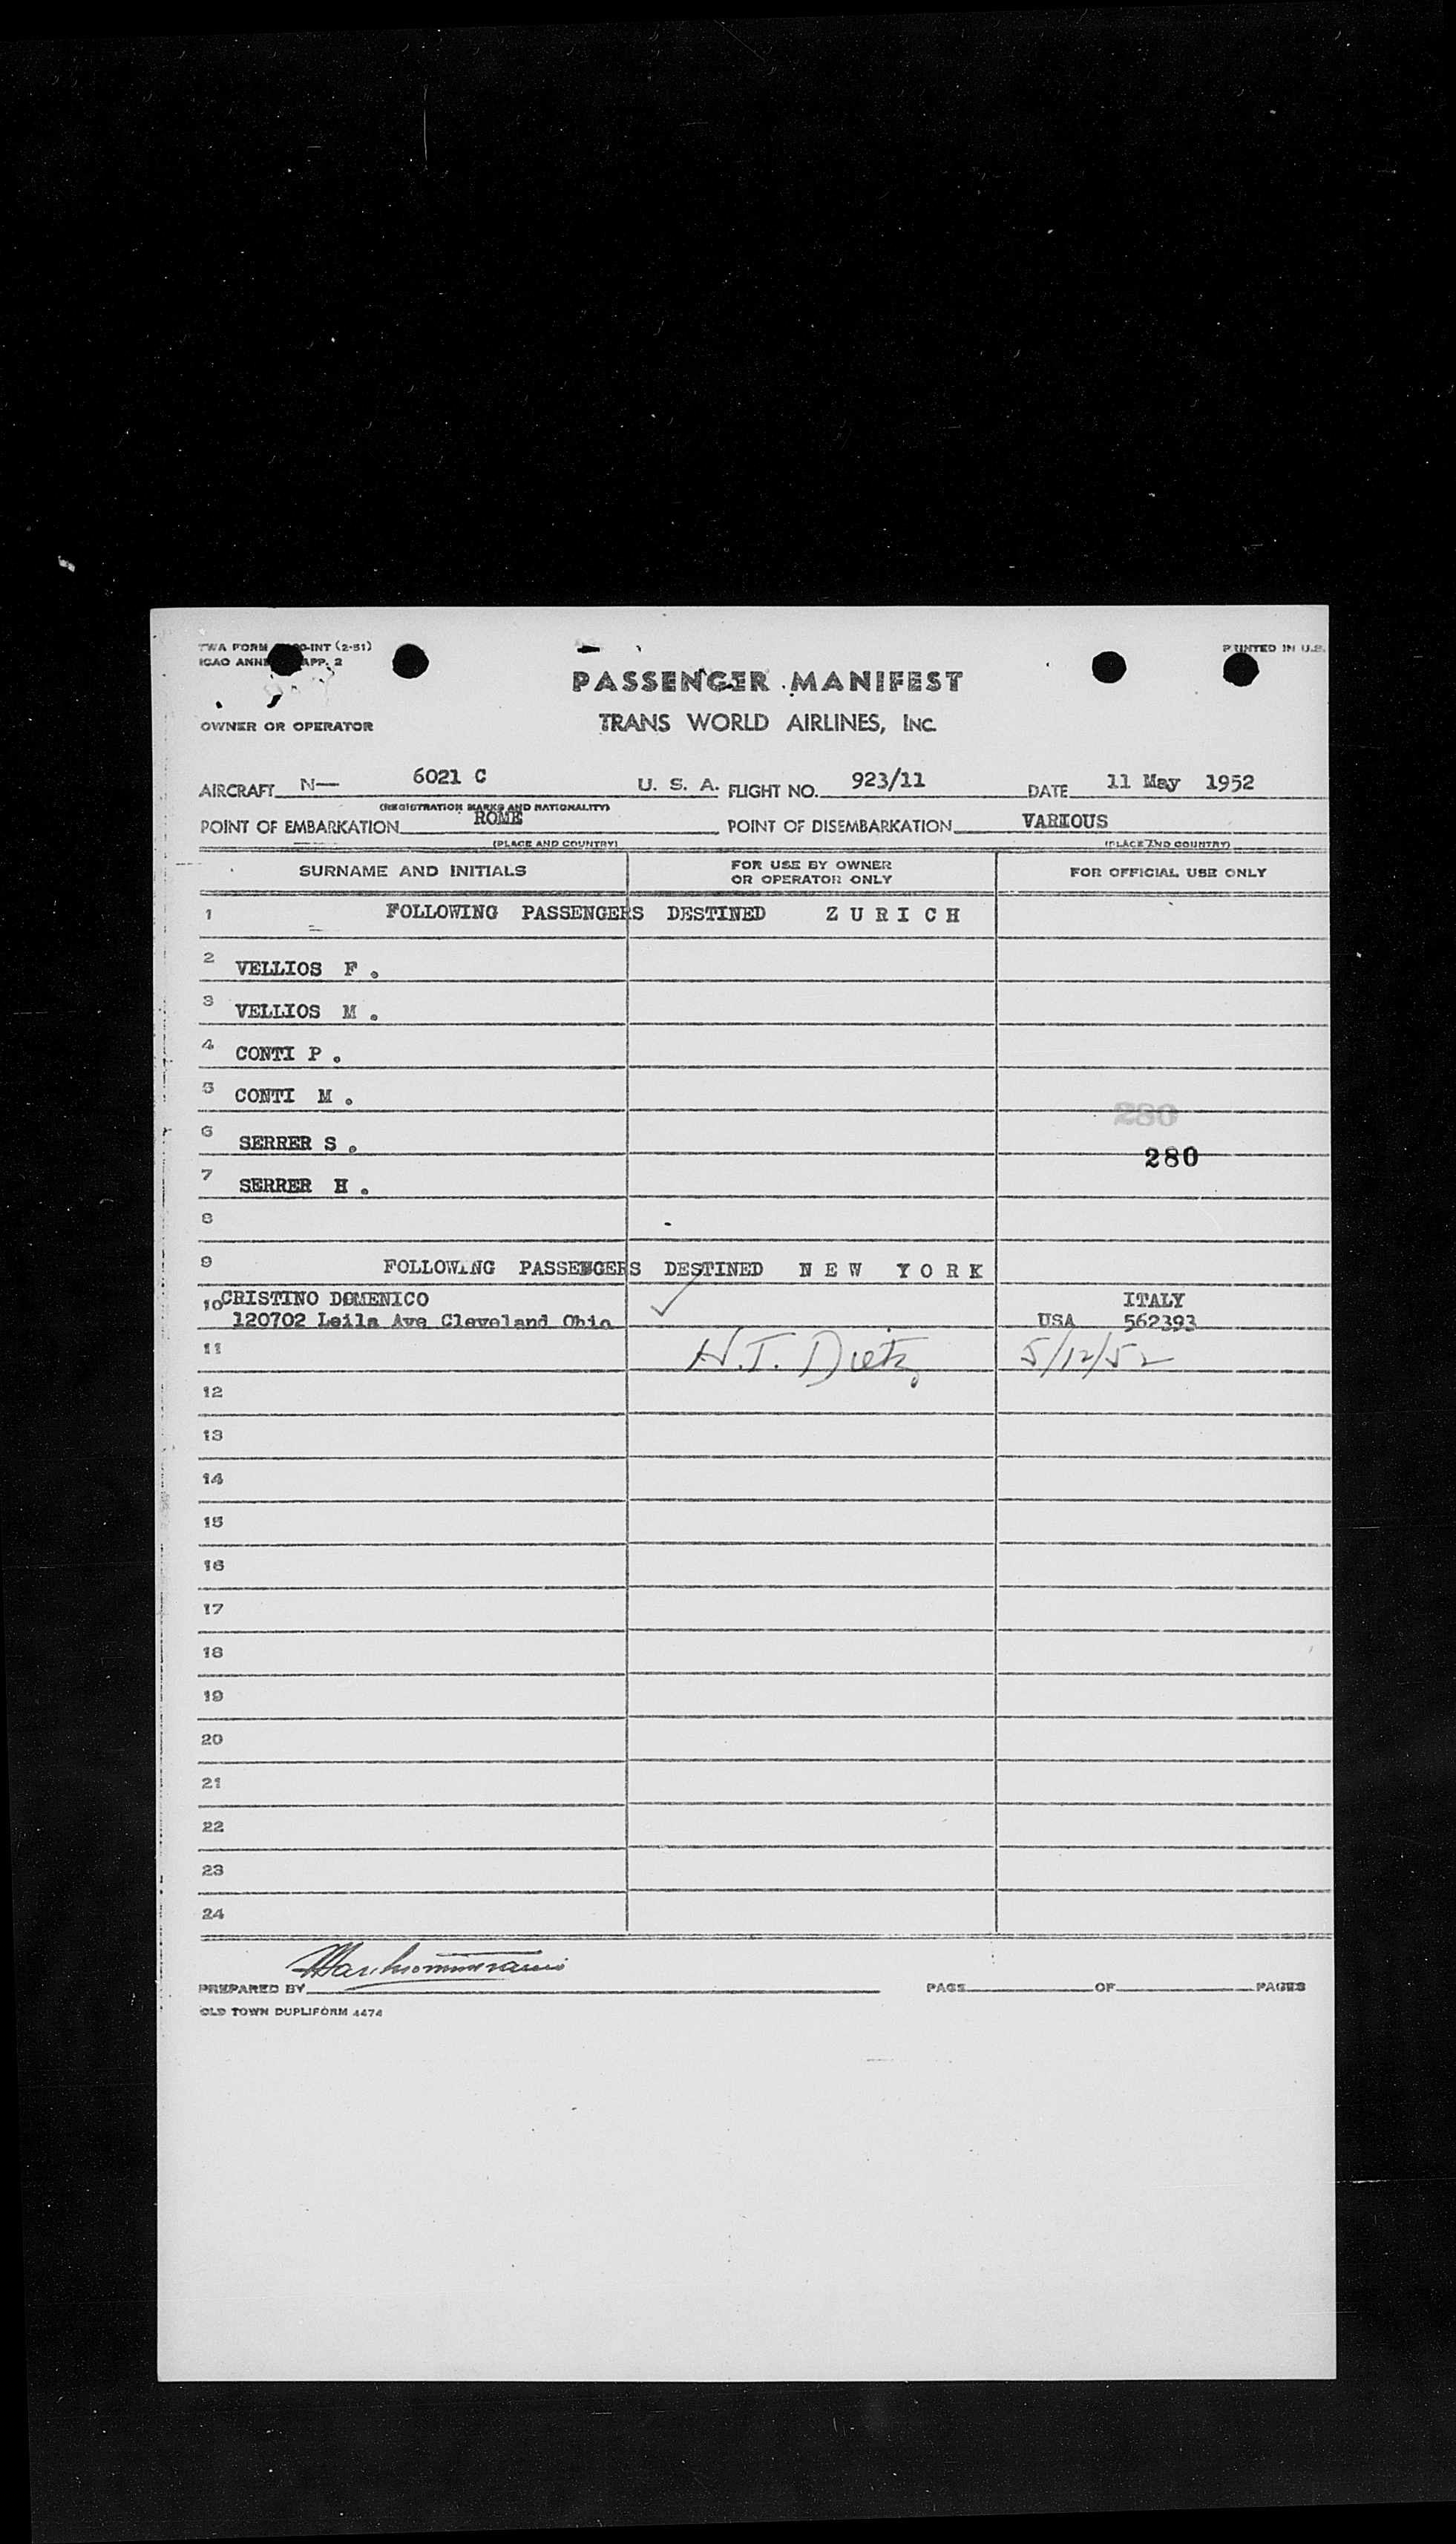 TWA FORM -INT (2-51)
PRINTED IN U.S.
ICAO ANNE APP. 2
PASSENGER MANIFEST
OWNER OR OPERATOR
TRANS WORLD AIRLINES, INC.
AIRCRAFT N— 6021 C U. S. A. FLIGHT NO. 923/11 DATE 11 May 1952
(REGISTRATION MARKS AND NATIONALITY)
POINT OF EMBARKATION ROME POINT OF DISEMBARKATION VARIOUS
(PLACE AND COUNTRY) (PLACE AND COUNTRY)
SURNAME AND INITIALS FOR USE BY OWNER OR OPERATOR ONLY FOR OFFICIAL USE ONLY
1 FOLLOWING PASSENGERS DESTINED Z U R I C H
2 VELLIOS F .
3 VELLIOS M .
4 CONTI P .
5 CONTI M .
280
6 SERRER S .
280
7 SERRER H .
8
9 FOLLOWING PASSENGERS DESTINED N E W Y O R K
10 CRISTINO DOMENICO ITALY
120702 Leila Ave Cleveland Ohio USA 562393
11 H.T. Dietz 5/12/52
12
13
14
15
16
17
18
19
20
21
22
23
24
PREPARED BY PAGE OF PAGES
OLD TOWN DUPLIFORM 4474